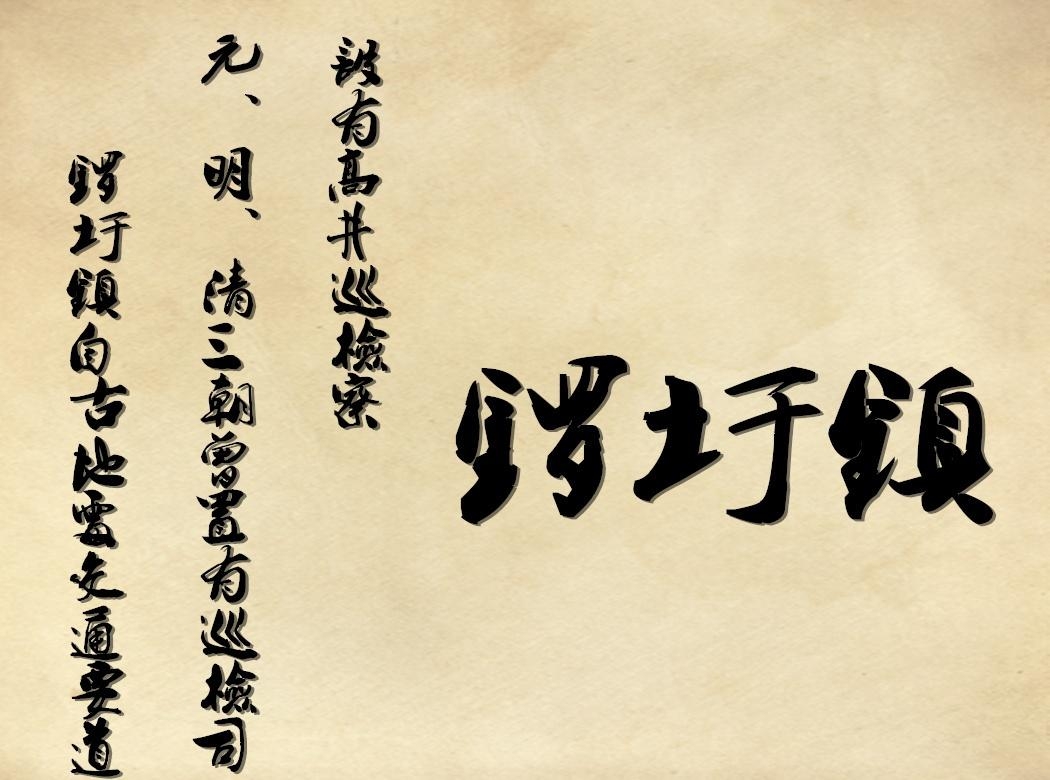 锣圩鎮自古地處交通要道
元、明、清三朝曾置有巡檢司
設有高井巡檢寨
锣圩鎮